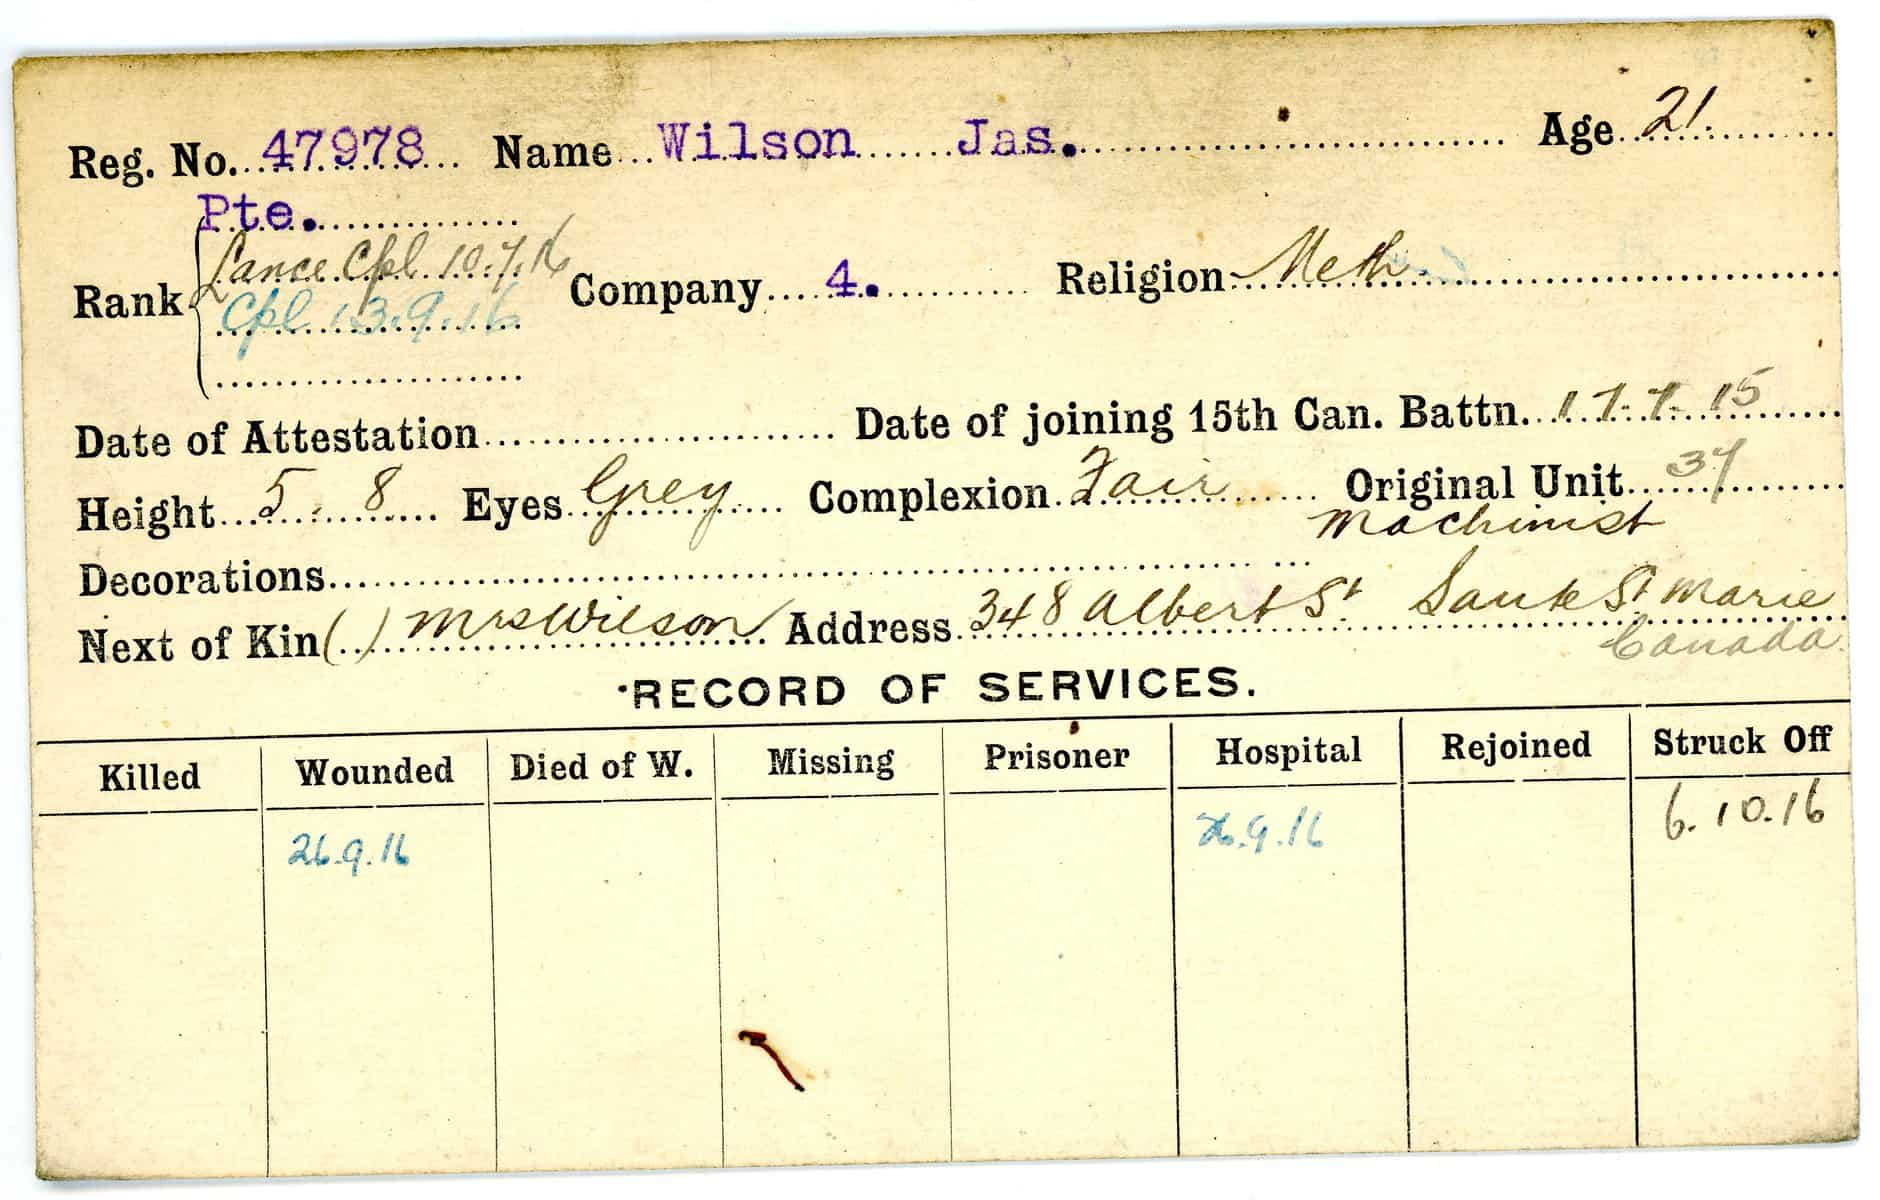 Reg. No. 47978 Name Wilson Jas. Age 21.
Pte.
Lance Cpl. 10.7.16
Rank Company 4. Religion Meth
Cpl 13.9.16
Date of Attestation Date of joining 15th Can. Battn. 17.7.15
Height 5. 8 Eyes Grey Complexion Fair Original Unit 37
Machinist
Decorations
Next of Kin ( ) Mrs Wilson Address 348 Albert St. Saulte St Marie
Canada
RECORD OF SERVICES.
Killed Wounded Died of W. Missing Prisoner Hospital Rejoined Struck Off
26.9.16 26.9.16 6.10.16